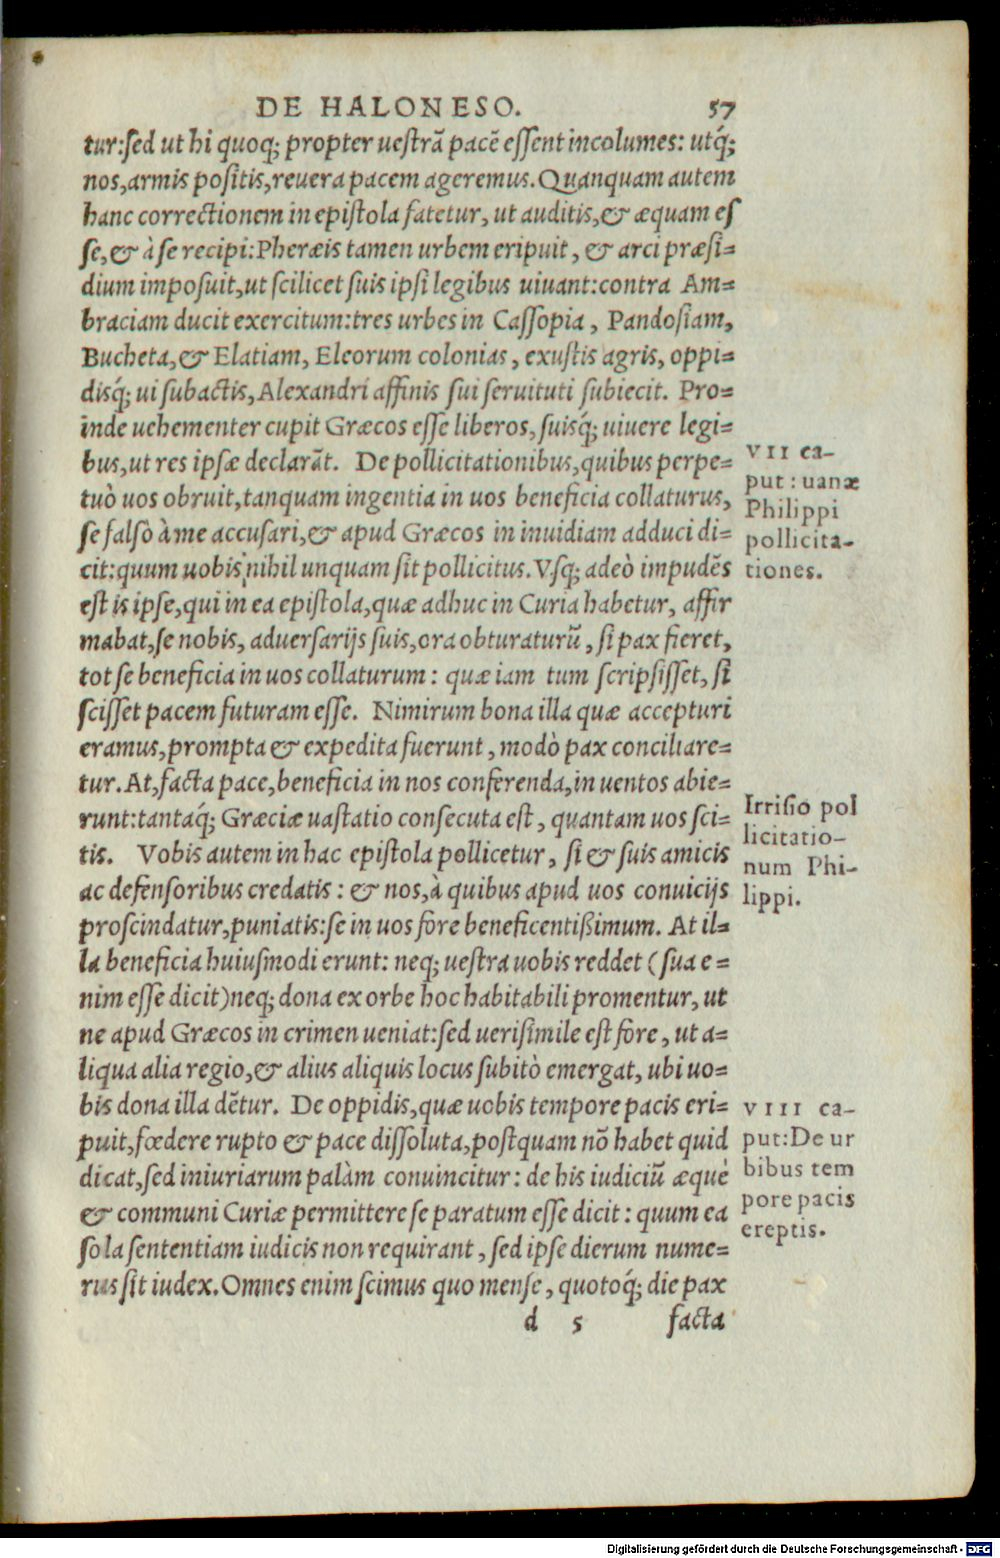 DE HALONESO. 57
tur:sed ut hi quoq; propter uestrā pacē essent incolumes: utq́;
nos,armis positis,reuera pacem ageremus.Quanquam autem
hanc correctionem in epistola fatetur, ut auditis,& æquam es
se,& à se recipi:Pheræis tamen urbem eripuit, & arci præsi=
dium imposuit,ut scilicet suis ipsi legibus uiuant:contra Am=
braciam ducit exercitum:tres urbes in Cassopia, Pandosiam,
Bucheta,& Elatiam, Eleorum colonias, exustis agris, oppi=
disq́; ui subactis,Alexandri affinis sui seruituti subiecit. Pro=
inde uehementer cupit Græcos esse liberos, suisq́; uiuere legi=
bus,ut res ipsæ declarāt. De pollicitationibus,quibus perpe=
tuò uos obruit,tanquam ingentia in uos beneficia collaturus,
se falsò à me accusari,& apud Græcos in inuidiam adduci di=
cit:quum uobis nihil unquam sit pollicitus.Vsq; adeò impudēs
est is ipse,qui in ea epistola,quæ adhuc in Curia habetur, affir
mabat,se nobis, aduersarijs suis,ora obturaturū, si pax fieret,
tot se beneficia in uos collaturum: quæ iam tum scripsisset, si
scisset pacem futuram esse. Nimirum bona illa quæ accepturi
eramus,prompta & expedita fuerunt, modò pax conciliare=
tur.At,facta pace,beneficia in nos conferenda,in uentos abie=
runt:tantaq́; Græciæ uastatio consecuta est, quantam uos sci=
tis. Vobis autem in hac epistola pollicetur, si & suis amicis
ac defensoribus credatis: & nos,à quibus apud uos conuicijs
proscindatur,puniatis:se in uos fore beneficentißimum. At il=
la beneficia huiusmodi erunt: neq; uestra uobis reddet (sua e=
nim esse dicit)neq; dona ex orbe hoc habitabili promentur, ut
ne apud Græcos in crimen ueniat:sed uerisimile est fore, ut a=
liqua alia regio,& alius aliquis locus subitò emergat, ubi uo=
bis dona illa dētur. De oppidis,quæ uobis tempore pacis eri=
puit,fœdere rupto & pace dissoluta,postquam nō habet quid
dicat,sed iniuriarum palàm conuincitur: de his iudiciū æquè
& communi Curiæ permittere se paratum esse dicit: quum ea
sola sententiam iudicis non requirant, sed ipse dierum nume=
rus sit iudex.Omnes enim scimus quo mense, quotoq́; die pax
d 5 facta
VII ca-
put: uanæ
Philippi
pollicita-
tiones.
Irrisio pol
licitatio-
num Phi-
lippi.
VIII ca-
put:De ur
bibus tem
pore pacis
ereptis.
Digitalisierung gefördert durch die Deutsche Forschungsgemeinschaft - DFG